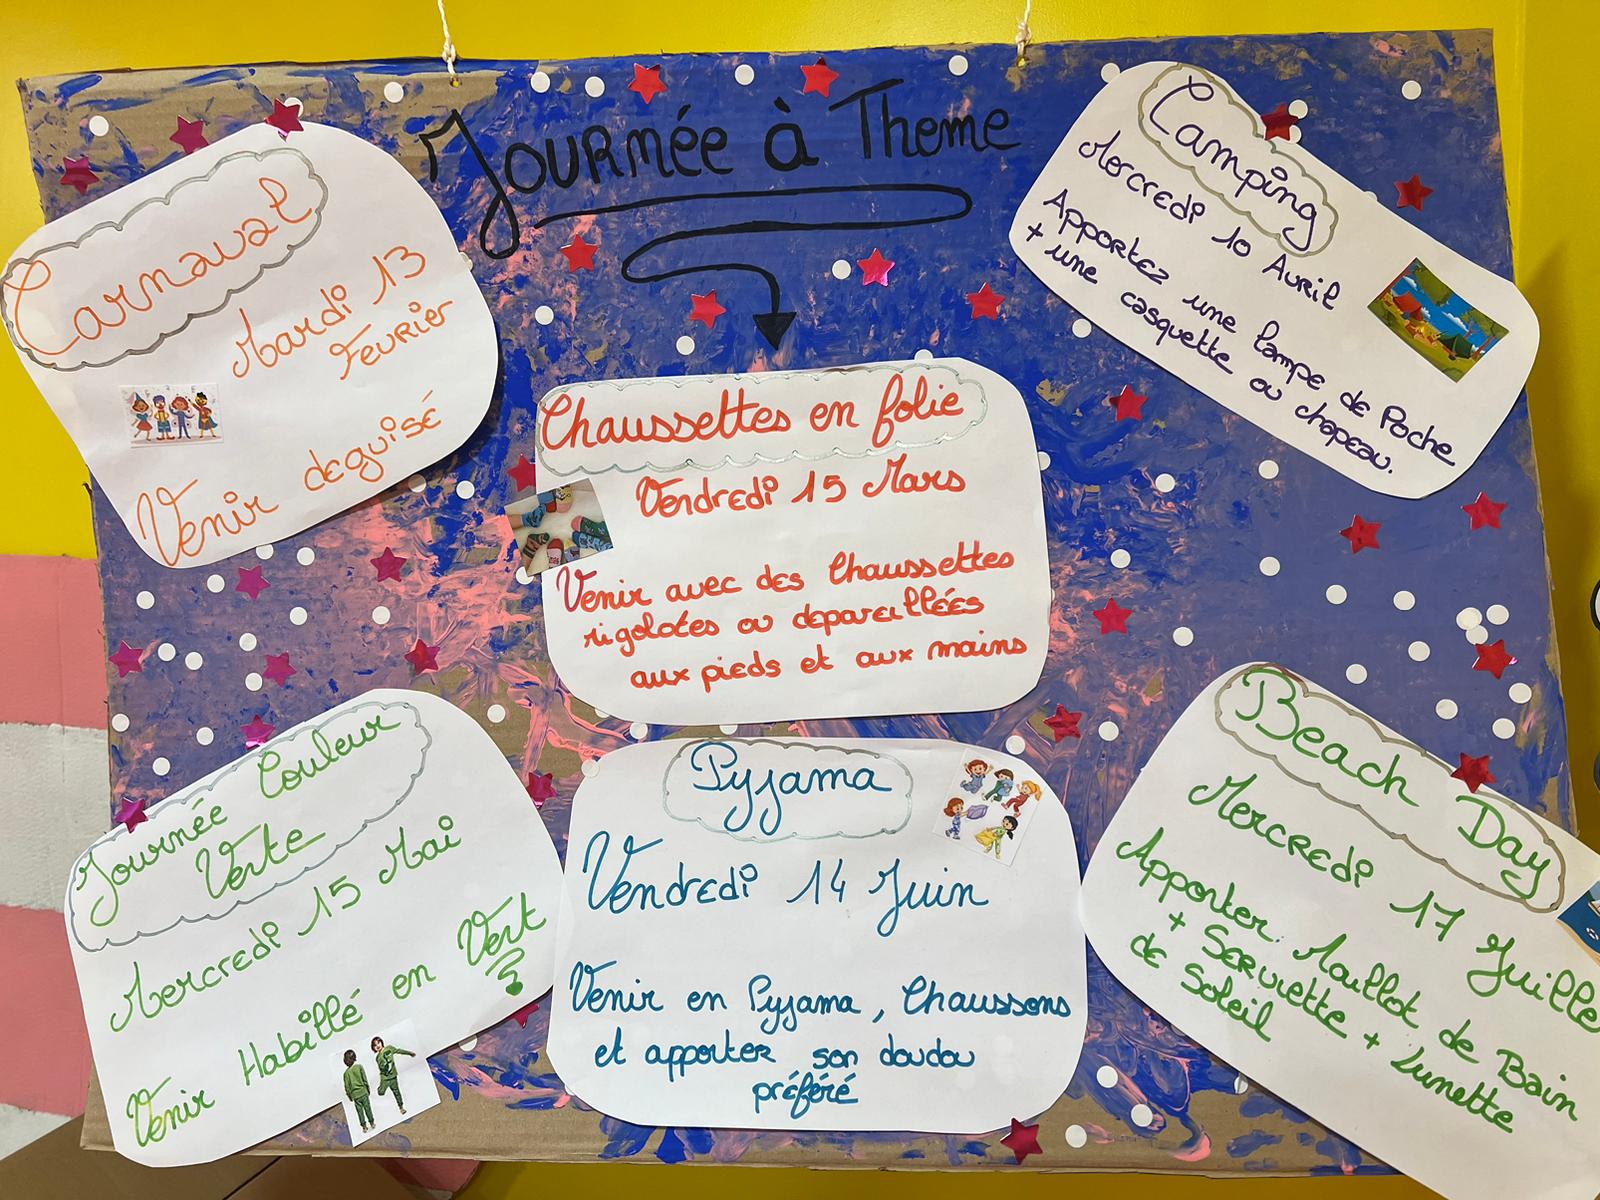 Journée à Theme
Carnaval
Mardi 13
Fevrier
Venir deguisé
Chaussettes en folie
Vendredi 15 Mars
Venir avec des Chaussettes
rigolotes ou depareillées
aux pieds et aux mains
Camping
Mercredi 10 Avril
Apportez une lampe de Poche
+ une casquette ou chapeau.
Journée Couleur
Verte
Mercredi 15 Mai
Venir Habillé en Vert
Pyjama
Vendredi 14 Juin
Venir en Pyjama, Chaussons
et apporter son doudou
préféré
Beach Day
Mercredi 17 Juille
Apporter: Maillot de Bain
+ Serviette + Lunette
de Soleil